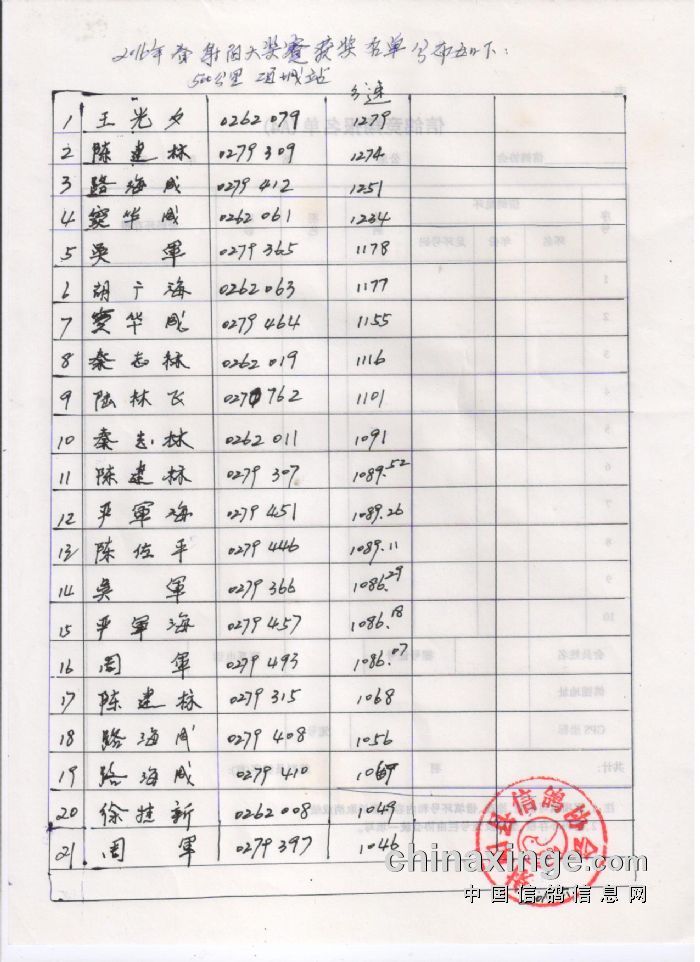 2016年春射阳大奖赛获奖名单公布如下:
500公里 项城站
分速
1 王光夕 0262079 1279
2 陈建林 0279309 1274
3 路海成 0279412 1251
4 窦华成 0262061 1234
5 吳軍 0279365 1178
6 胡广海 0262063 1177
7 窦华成 0279464 1155
8 秦志林 0262019 1116
9 陆林飞 0279762 1101
10 秦志林 0262011 1091
11 陈建林 0279307 1089.52
12 严軍海 0279451 1089.26
13 陈佐平 0279446 1089.11
14 吳軍 0279366 1086.29
15 严軍海 0279457 1086.18
16 周軍 0279493 1086.07
17 陈建林 0279315 1068
18 路海成 0279408 1056
19 路海成 0279410
20 徐桂新 0262008 1049
21 周軍 0279397 1046
信鸽协会
chinaxinge.com
中国信鸽信息网